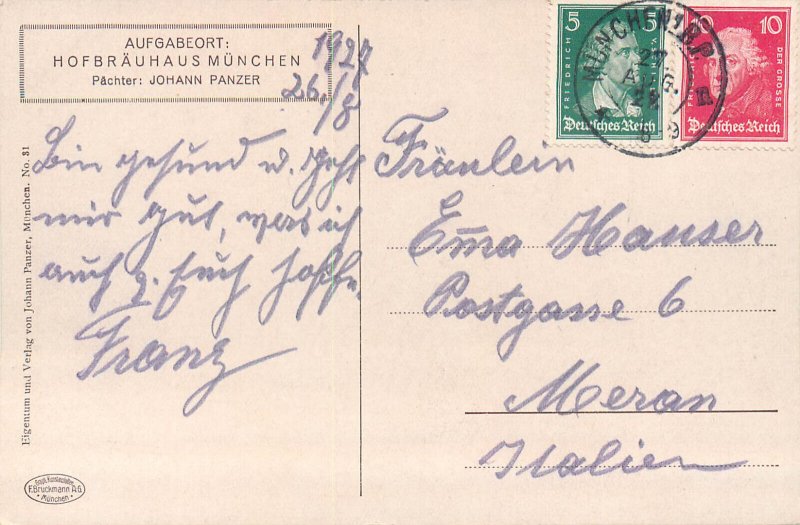 AUFGABEORT:
HOFBRÄUHAUS MÜNCHEN
Pächter: JOHANN PANZER
1927
26./8
Bin gesund u. geht
mir gut, was ich
auch v. Euch hoffe.
Franz
Eigentum und Verlag von Johann Panzer, München. No. 31
F. Bruckmann A.G.
München
5 5
FRIEDRICH
Deutsches Reich
10 10
DER GROSSE
Deutsches Reich
MÜNCHEN
27.
AUG.
Fräulein
Ema Hauser
Postgasse 6
Meran
Italien